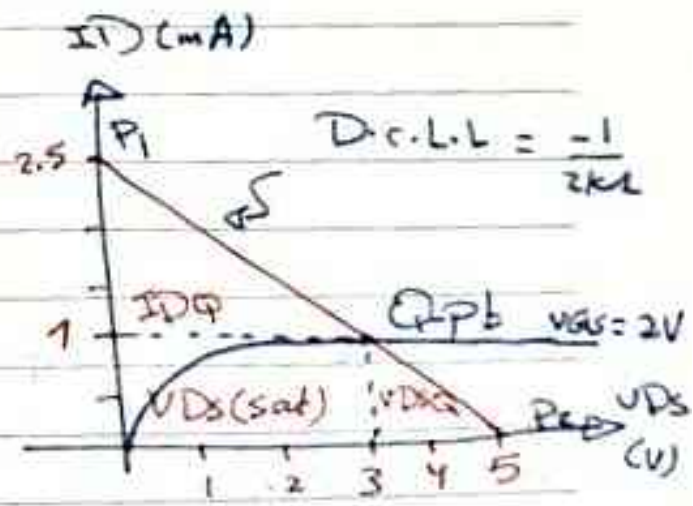 ID (mA)
P1
D.C.L.L = -1/2kΩ
2.5
IDQ
Q-pt
VGS = 2V
1
VDS(sat)
VDSQ
VDS
(V)
1 2 3 4 5